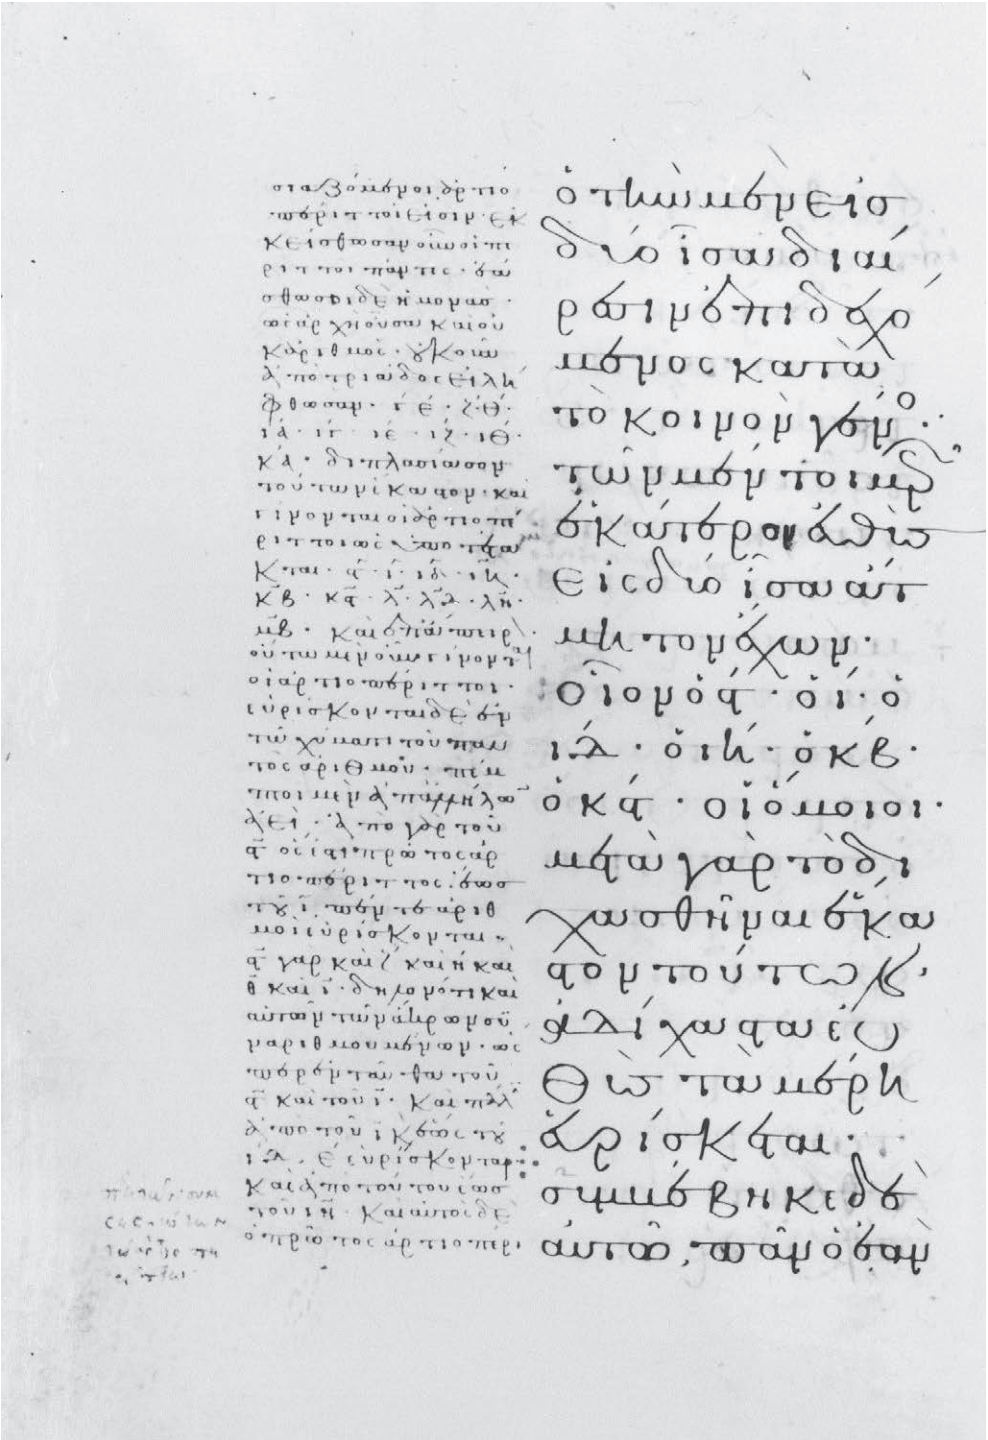 σταζόμενοι ἀρτιο
πέριττοι εἰσιν· ἐκ
κείσθωσαν οὖν οἱ πε
ριττοι πάντες· ἐά
σθω δὲ ἡ μονὰς·
ὡς ἀρχὴ οὖσα καὶ οὐ
κ ἀριθμός·
ἀπὸ τριάδος εἰλή
φθωσαν· γ· ε· ζ· θ·
ια· ιγ· ιε· ιζ· ιθ·
κα· διπλασίασον
τούτων ἕκαστον· καὶ
γίνονται οἱ ἀρτιοπέ
ριττοι ὡς ὑποτέτα
κται· ϛ· ι· ιδ· ιη·
κβ· κϛ· λ· λδ· λη·
μβ· καὶ ἐπ' ἄπειρ
οὕτω μὲν οὖν γίνονται
οἱ ἀρτιοπέριττοι·
εὑρίσκονται δὲ ἐν
τῷ χύματι τοῦ παν
τὸς ἀριθμοῦ· πέμ
πτοι μὲν ἀπ' ἀλλήλων
ἀεί· ἀπὸ γὰρ τοῦ
ϛ ὅς ἐστι πρῶτος ἀρ
τιοπέριττος ἕως
τοῦ ι πέντε ἀριθ
μοὶ εὑρίσκονται·
ϛ γὰρ καὶ ζ καὶ η καὶ
θ καὶ ι· δηλονότι καὶ
αὐτῶν τῶν ἄκρων συ
ναριθμουμένων· ὡς
περ ἐνταῦθα τοῦ
ϛ καὶ τοῦ ι· καὶ παλ
ἀπὸ τοῦ ι ἕως τοῦ
ιδ· ε εὑρίσκονται
καὶ ἀπὸ τούτου ἕως
τοῦ ιη· καὶ αὐτὸς δὲ
ὁ πρῶτος ἀρτιοπέρι
ὁ τὴν μὲν εἰσ
δύο ἴσα διαί
ρεσιν ἐπιδεχό
μενος κατὰ
τὸ κοινὸν γέν°·
τῶν μέντοι μερ
ἑκάτερον εὐθὺσ
εἰς δύο ἴσα ἄτ
μητον ἔχων·
οἷον ὁ ϛ· ὁ ι· ὁ
ιδ· ὁ ιη· ὁ κβ·
ὁ κϛ· οἱ ὅμοιοι·
μετὰ γὰρ τὸ δι
χασθῆναι ἕκα
στον τούτων,
ἀδίχαστα εὐ
θὺσ τὰ μέρη
εὑρίσκεται·
συμβέβηκε δὲ
αὐτῶ, πᾶν ὃ ἐὰν